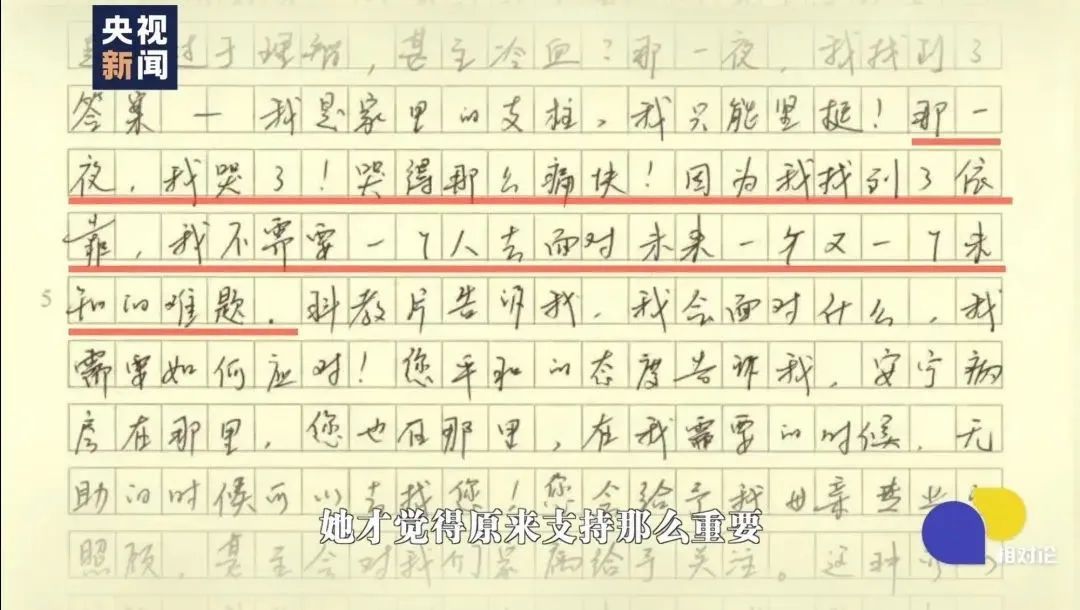 央视
新闻
过于理智，甚至冷血？那一夜，我找到了
答案 — 我是家里的支柱，我只能坚挺！那一
夜，我哭了！哭得那么痛快！因为我找到了依
靠，我不需要一个人去面对未来一个又一个未
5 知的难题。科教片告诉我，我会面对什么，我
需要如何应对！您平和的态度告诉我，安宁病
房在那里，您也在那里，在我需要的时候，无
助的时候可以去找您！您会给予我母亲
她才觉得原来支持那么重要
照顾，甚至会对我们家属给予关注。这种
相对论